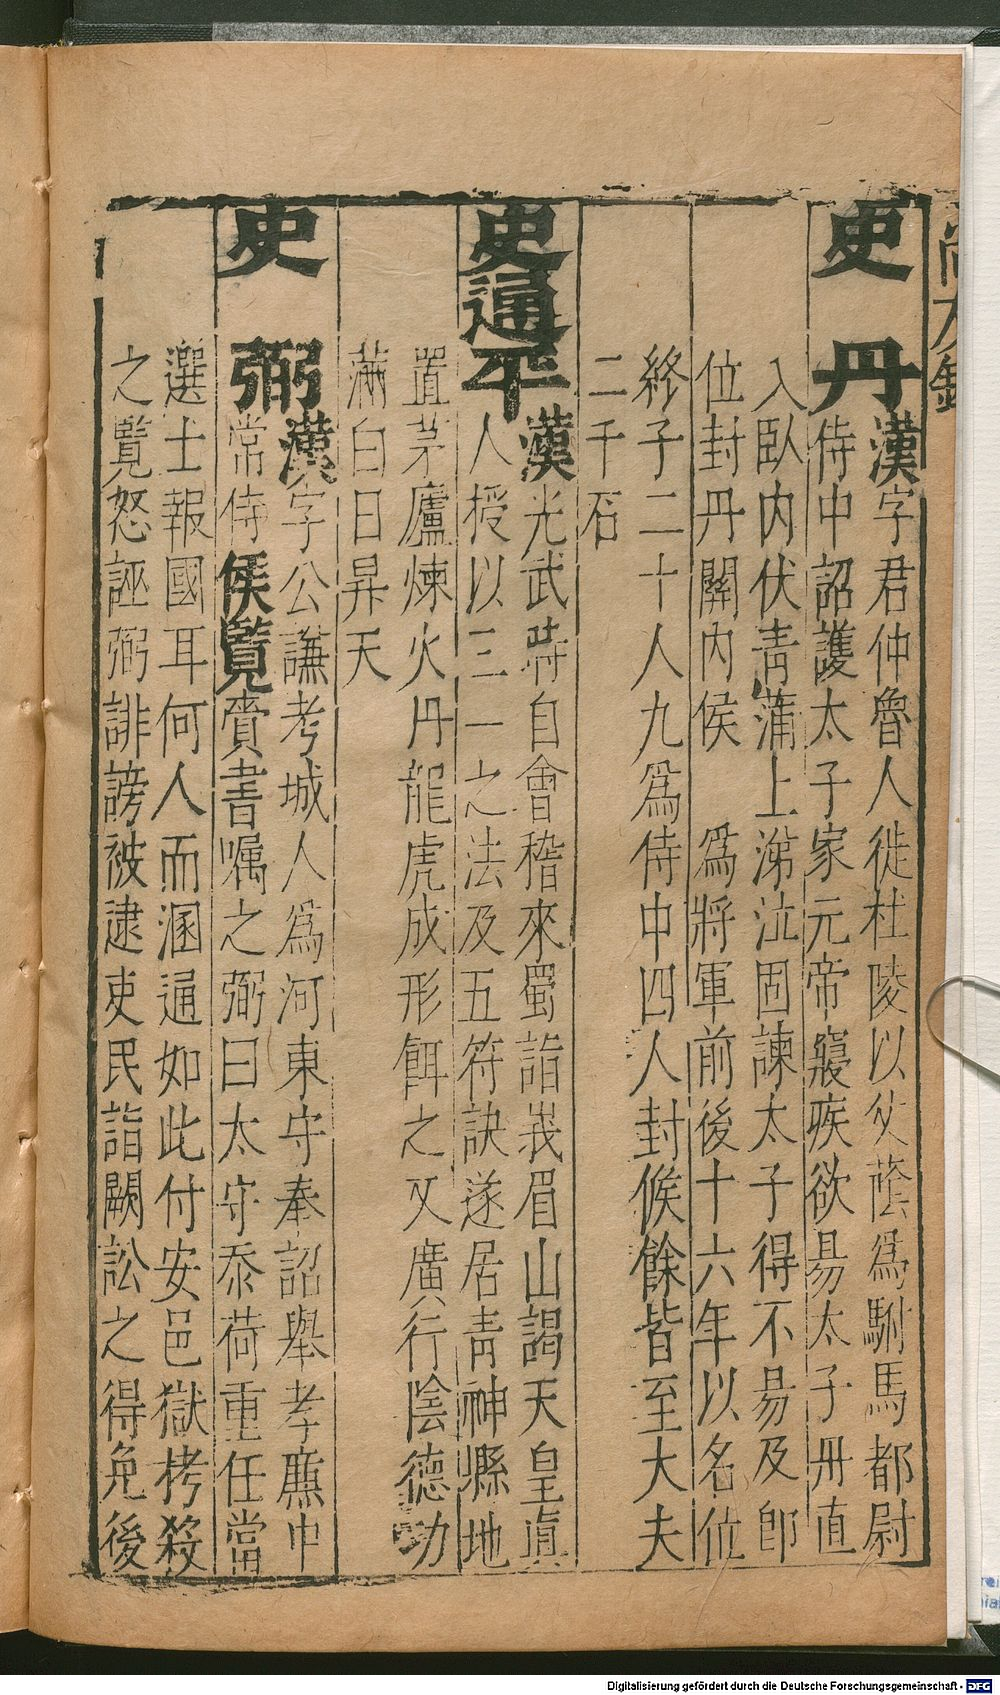 史丹漢字君仲魯人徙杜陵以父蔭爲駙馬都尉
侍中詔護太子家元帝寢疾欲易太子丹直
入臥内伏青蒲上涕泣固諫太子得不易及即
位封丹關内侯 爲將軍前後十六年以名位
終子二十人九爲侍中四人封侯餘皆至大夫
二千石
史通平漢光武時自會稽來蜀詣峩眉山謁天皇眞
人授以三一之法及五符訣遂居青神縣地
置茅廬煉火丹龍虎成形餌之又廣行陰德功
滿白日昇天
史弼漢字公謙考城人爲河東守奉詔舉孝廉中
常侍侯覽賫書嘱之弼曰太守忝荷重任當
選士報國耳何人而溷通如此付安邑獄栲殺
之覧怒誣弼誹謗被逮吏民詣闕訟之得免後
Digitalisierung gefördert durch die Deutsche Forschungsgemeinschaft - DFG